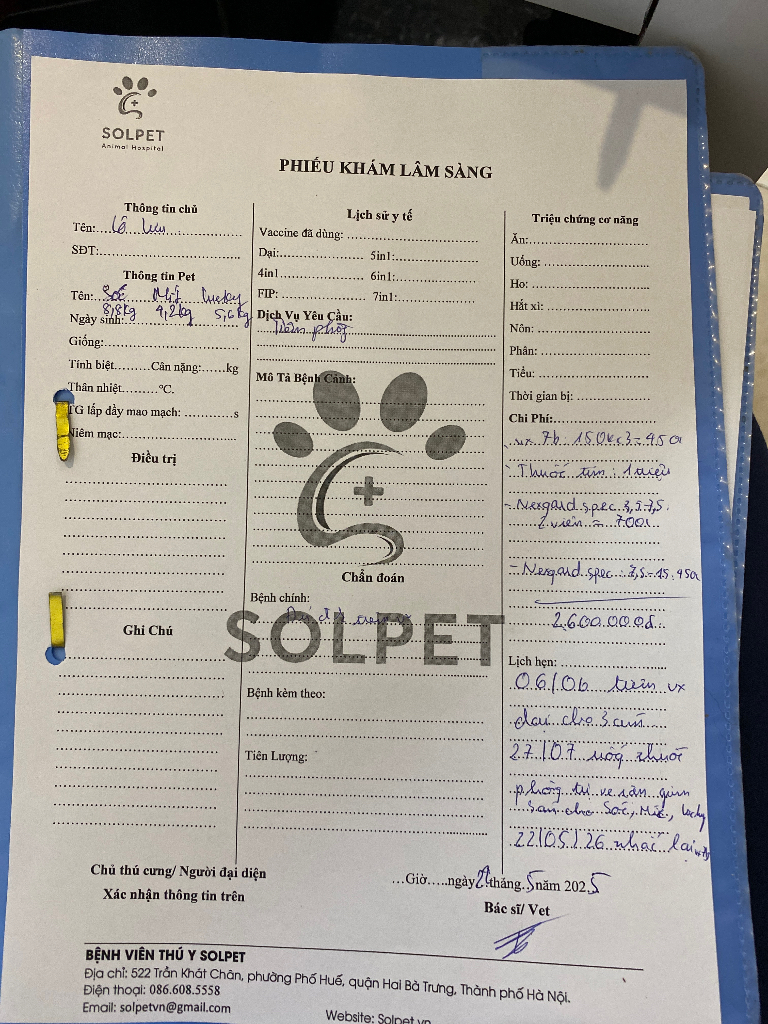 SOLPET
Animal Hospital
PHIẾU KHÁM LÂM SÀNG
Thông tin chủ
Tên:
SĐT:
Thông tin Pet
Tên: Sóc Mít Lucky
8,8kg 4,2kg 5,6kg
Ngày sinh:
Giống:
Tính biệt.........Cân nặng:......kg
Thân nhiệt.........ºC.
TG lấp đầy mao mạch: ............s
Niêm mạc:
Điều trị
Ghi Chú
Lịch sử y tế
Vaccine đã dùng:
Dại: 5in1:
4in1 6in1:
FIP: 7in1:
Dịch Vụ Yêu Cầu:
Tiêm phòng
Mô Tả Bệnh Cảnh:
Chẩn đoán
Bệnh chính:
SOLPET
Bệnh kèm theo:
Tiên Lượng:
Triệu chứng cơ năng
Ăn:
Uống:
Ho:
Hắt xì:
Nôn:
Phân:
Tiểu:
Thời gian bị:
Chi Phí:
- vx 7b 150kx3 = 450k
- Thuốc tim : 1 triệu
- Nexgard spec 3,5-7,5.
2 viên = 700k
- Nexgard spec : 7,5-15. 450k
2.600.000đ
Lịch hẹn:
06/06 tiêm vx
dại cho 3 cún
27/07 uống thuốc
phòng ti ve rận giun
sán cho Sóc, Mít, Lucky
22/05/26 nhắc lại
Chủ thú cưng/ Người đại diện
Xác nhận thông tin trên
...Giờ.....ngày tháng 5 năm 2025
Bác sĩ/ Vet
BỆNH VIÊN THÚ Y SOLPET
Địa chỉ: 522 Trần Khát Chân, phường Phố Huế, quận Hai Bà Trưng, Thành phố Hà Nội.
Điện thoại: 086.608.5558
Email: solpetvn@gmail.com
Website: Solpet.vn